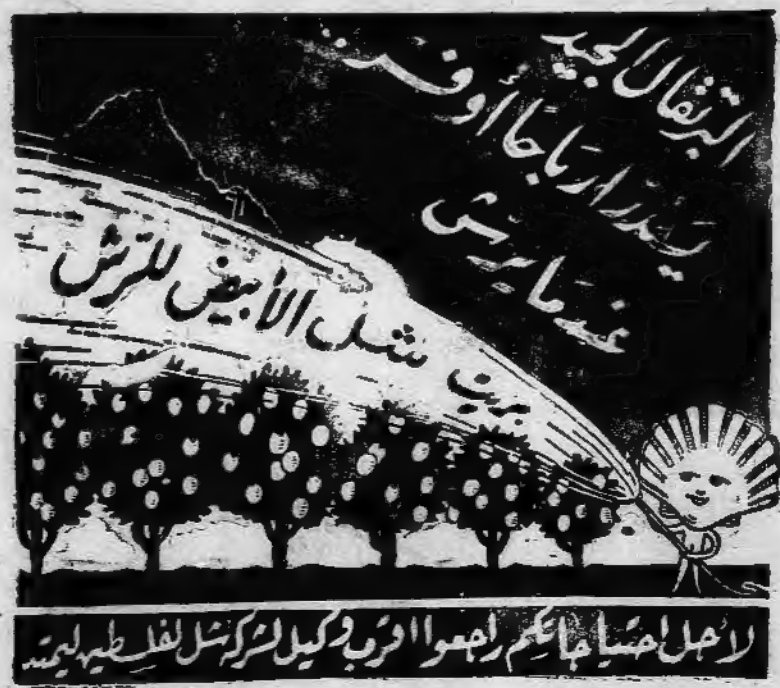 البرتقال الجيد
يدرّ ارباحًا أوفر
عندما يرش
بزيت شل الأبيض للرش
لأجل احتياجاتكم راجعوا اقرب وكيل لشركة شل لفلسطين ليمتد